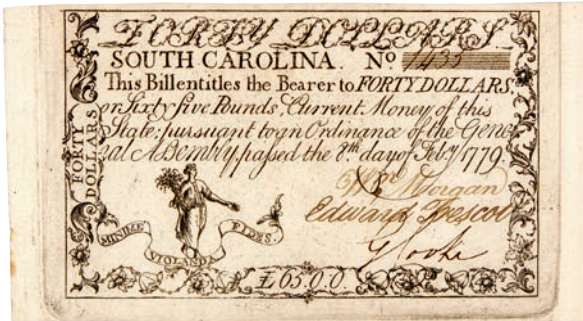 FORTY DOLLARS
SOUTH CAROLINA. No 1435
This Bill entitles the Bearer to FORTY DOLLARS,
or Sixty five Pounds, Current Money of this
State; pursuant to an Ordinance of the Gene-
ral Assembly, passed the 8th day of Feby 1779.
FORTY
DOLLARS
Morgan
Edward Trescot
G Cooke
MINIME VIOLANDA FIDES.
£65.0.0.